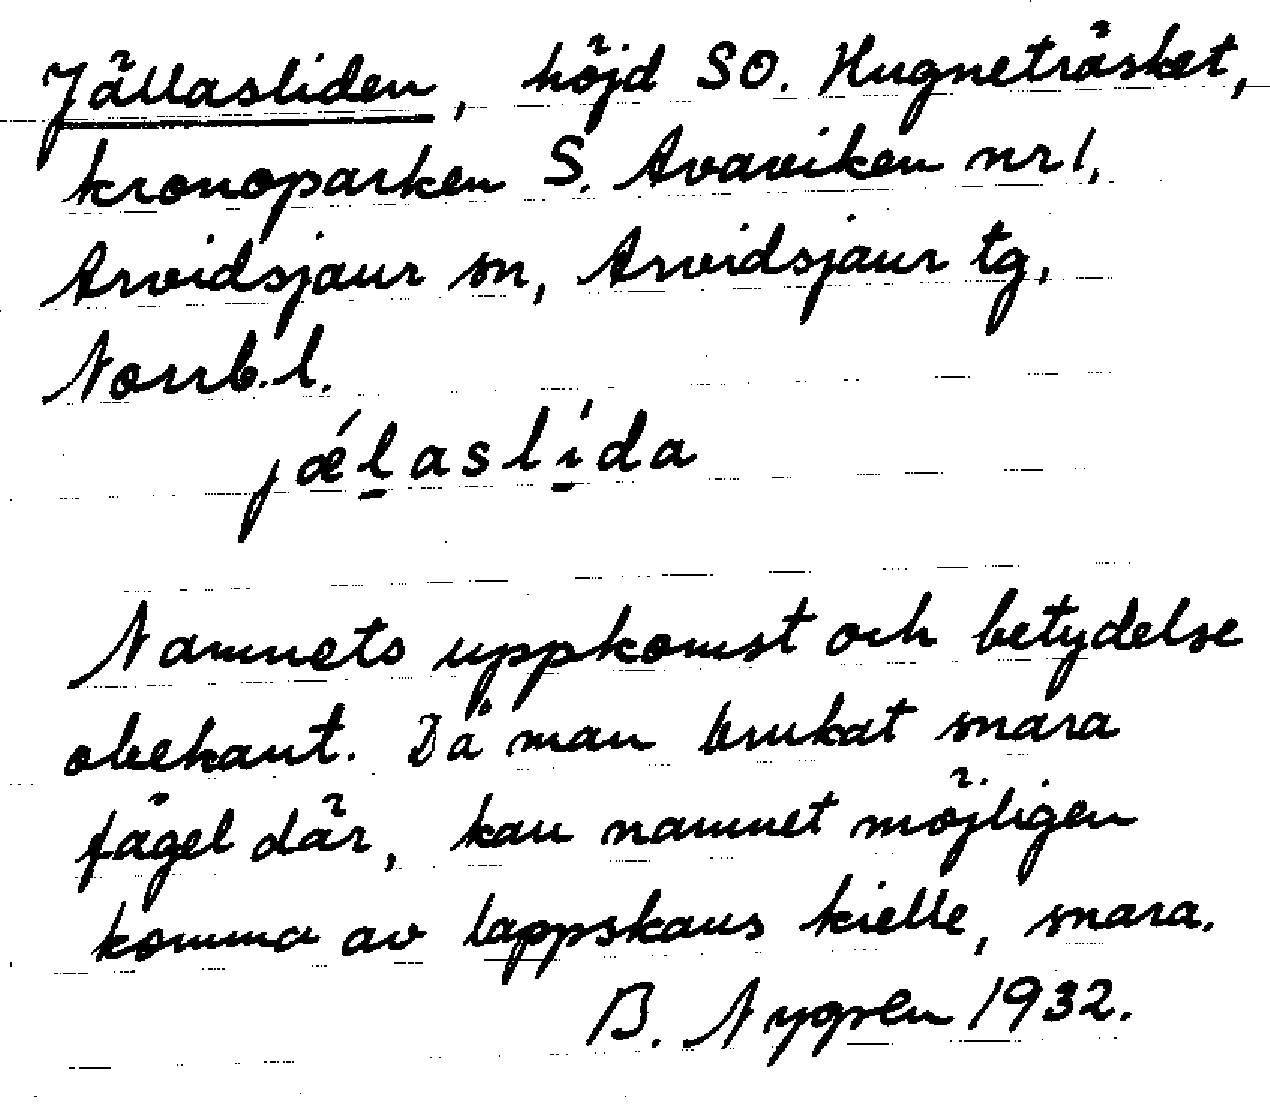 Jällasliden, höjd SO. Hugneträsket,
kronoparken S. Avaviken nr 1,
Arvidsjaur sn, Arvidsjaur tg,
Norrb. l.
jǽl̲aslí̲da
Namnets uppkomst och betydelse
obekant. Då man brukat snara
fågel där, kan namnet möjligen
komma av lappskans kielle, snara.
B. Nygren 1932.